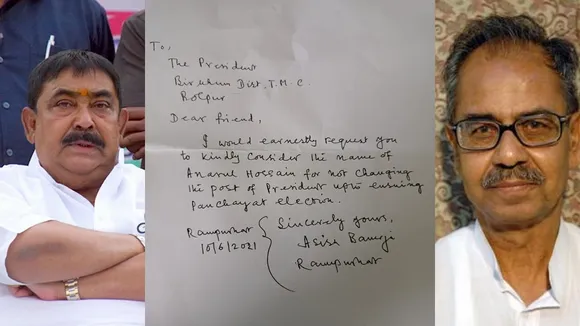 To,
The President
Birbhum Dist, T.M.C.
Bolpur
Dear friend,
I would earnestly request you
to kindly consider the name of
Anarul Hossain for not changing
the post of President upto ensuing
Panchayat election.
Sincerely yours,
Asish Banerji
Rampurhat
Rampurhat
10/6/2021